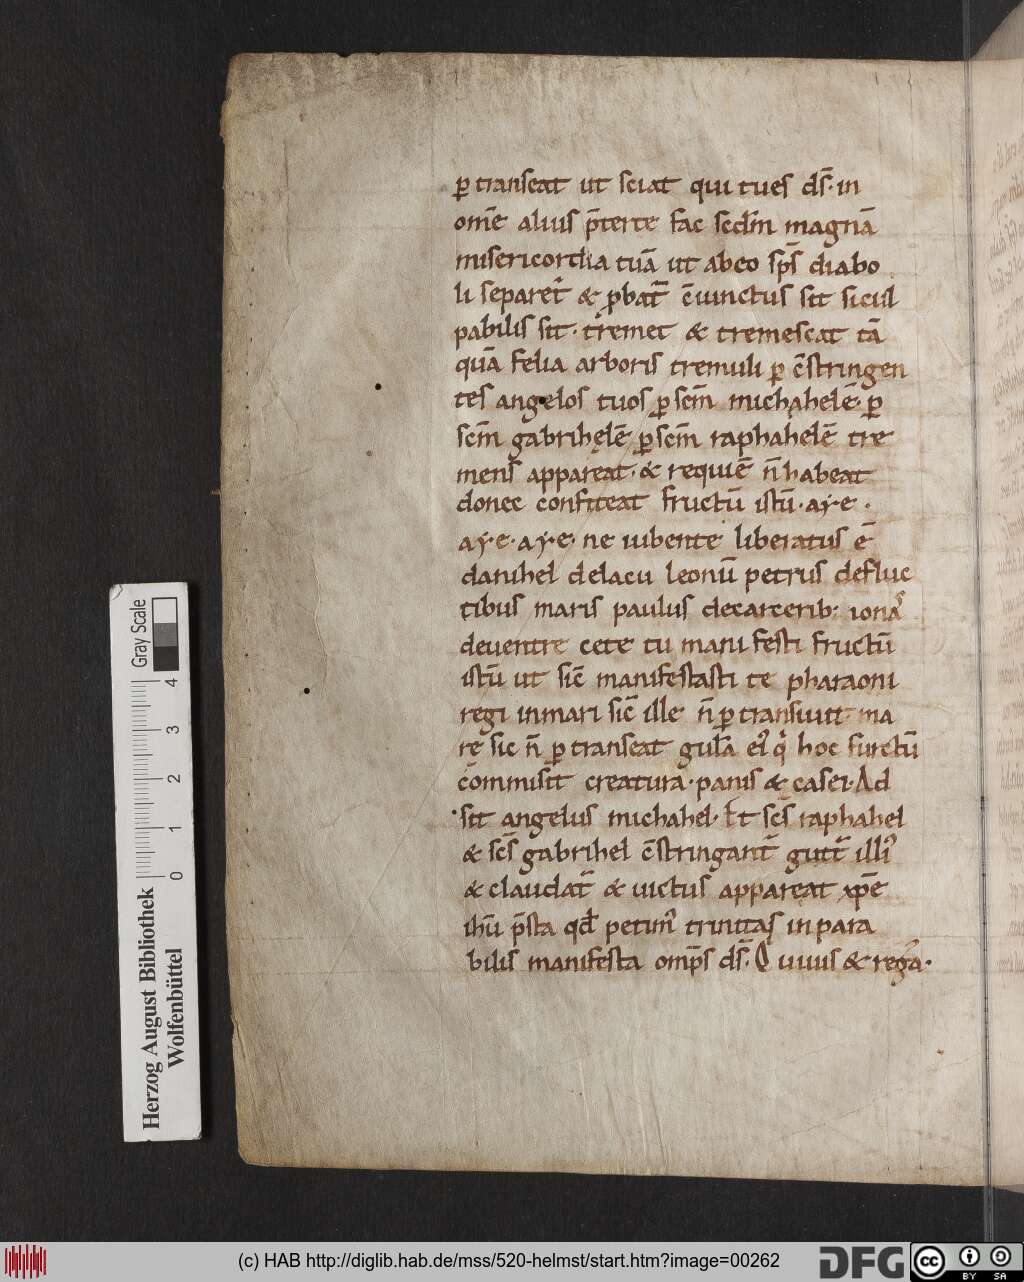 ꝑ transeat ut sciat qui tu es dꝰ. in
om̅e alius p̅ter te fac scdm̅ magnā
misericordia tuā ut ab eo sp̅s diabo
li separet̃ & ꝓbat̃ c̅uinctus sit si cul
pabilis sit. tremet & tremescat tā
quā felia arboris tremuli ꝑ c̅stringen
tes angelos tuos ꝑ scm̅ michahelē. ꝑ
scm̅ gabrihelē ꝑ scm̅ raphahelē tre
mens appareat. & requiē n̅ habeat
donec confiteat fructū istū. a y e .
a y e. a y e. ne iubente liberatus ē
danihel de lacu leonū petrus de fluc
tibus maris paulus de carcerib: iona᷒
de uentre cete tu manifesti fructū
istū ut sic̅ manifestasti te pharaoni
regi in mari sic̅ ille n̅ ꝑ transiuit ma
rę sic n̅ ꝑ transeat gula̅ ei᷒ q̍ hoc furctū
c̄ommisit̅ creatura. panis & casei. Ad
sit angelus michahel. Et sc̅s raphahel
& sc̅s gabrihel c̅stringant̃ gutt̃ illi᷒
& claudat̃ & uictus appareat xp̅e
ihū p̅sta qd̅ petim᷒ trinitas inpara
bilis manifesta omp̅s ds̅. Q uiuis & regn̄a.
Gray Scale
0 1 2 3 4
Herzog August Bibliothek
Wolfenbüttel
(c) HAB http://diglib.hab.de/mss/520-helmst/start.htm?image=00262
DFG
cc BY SA